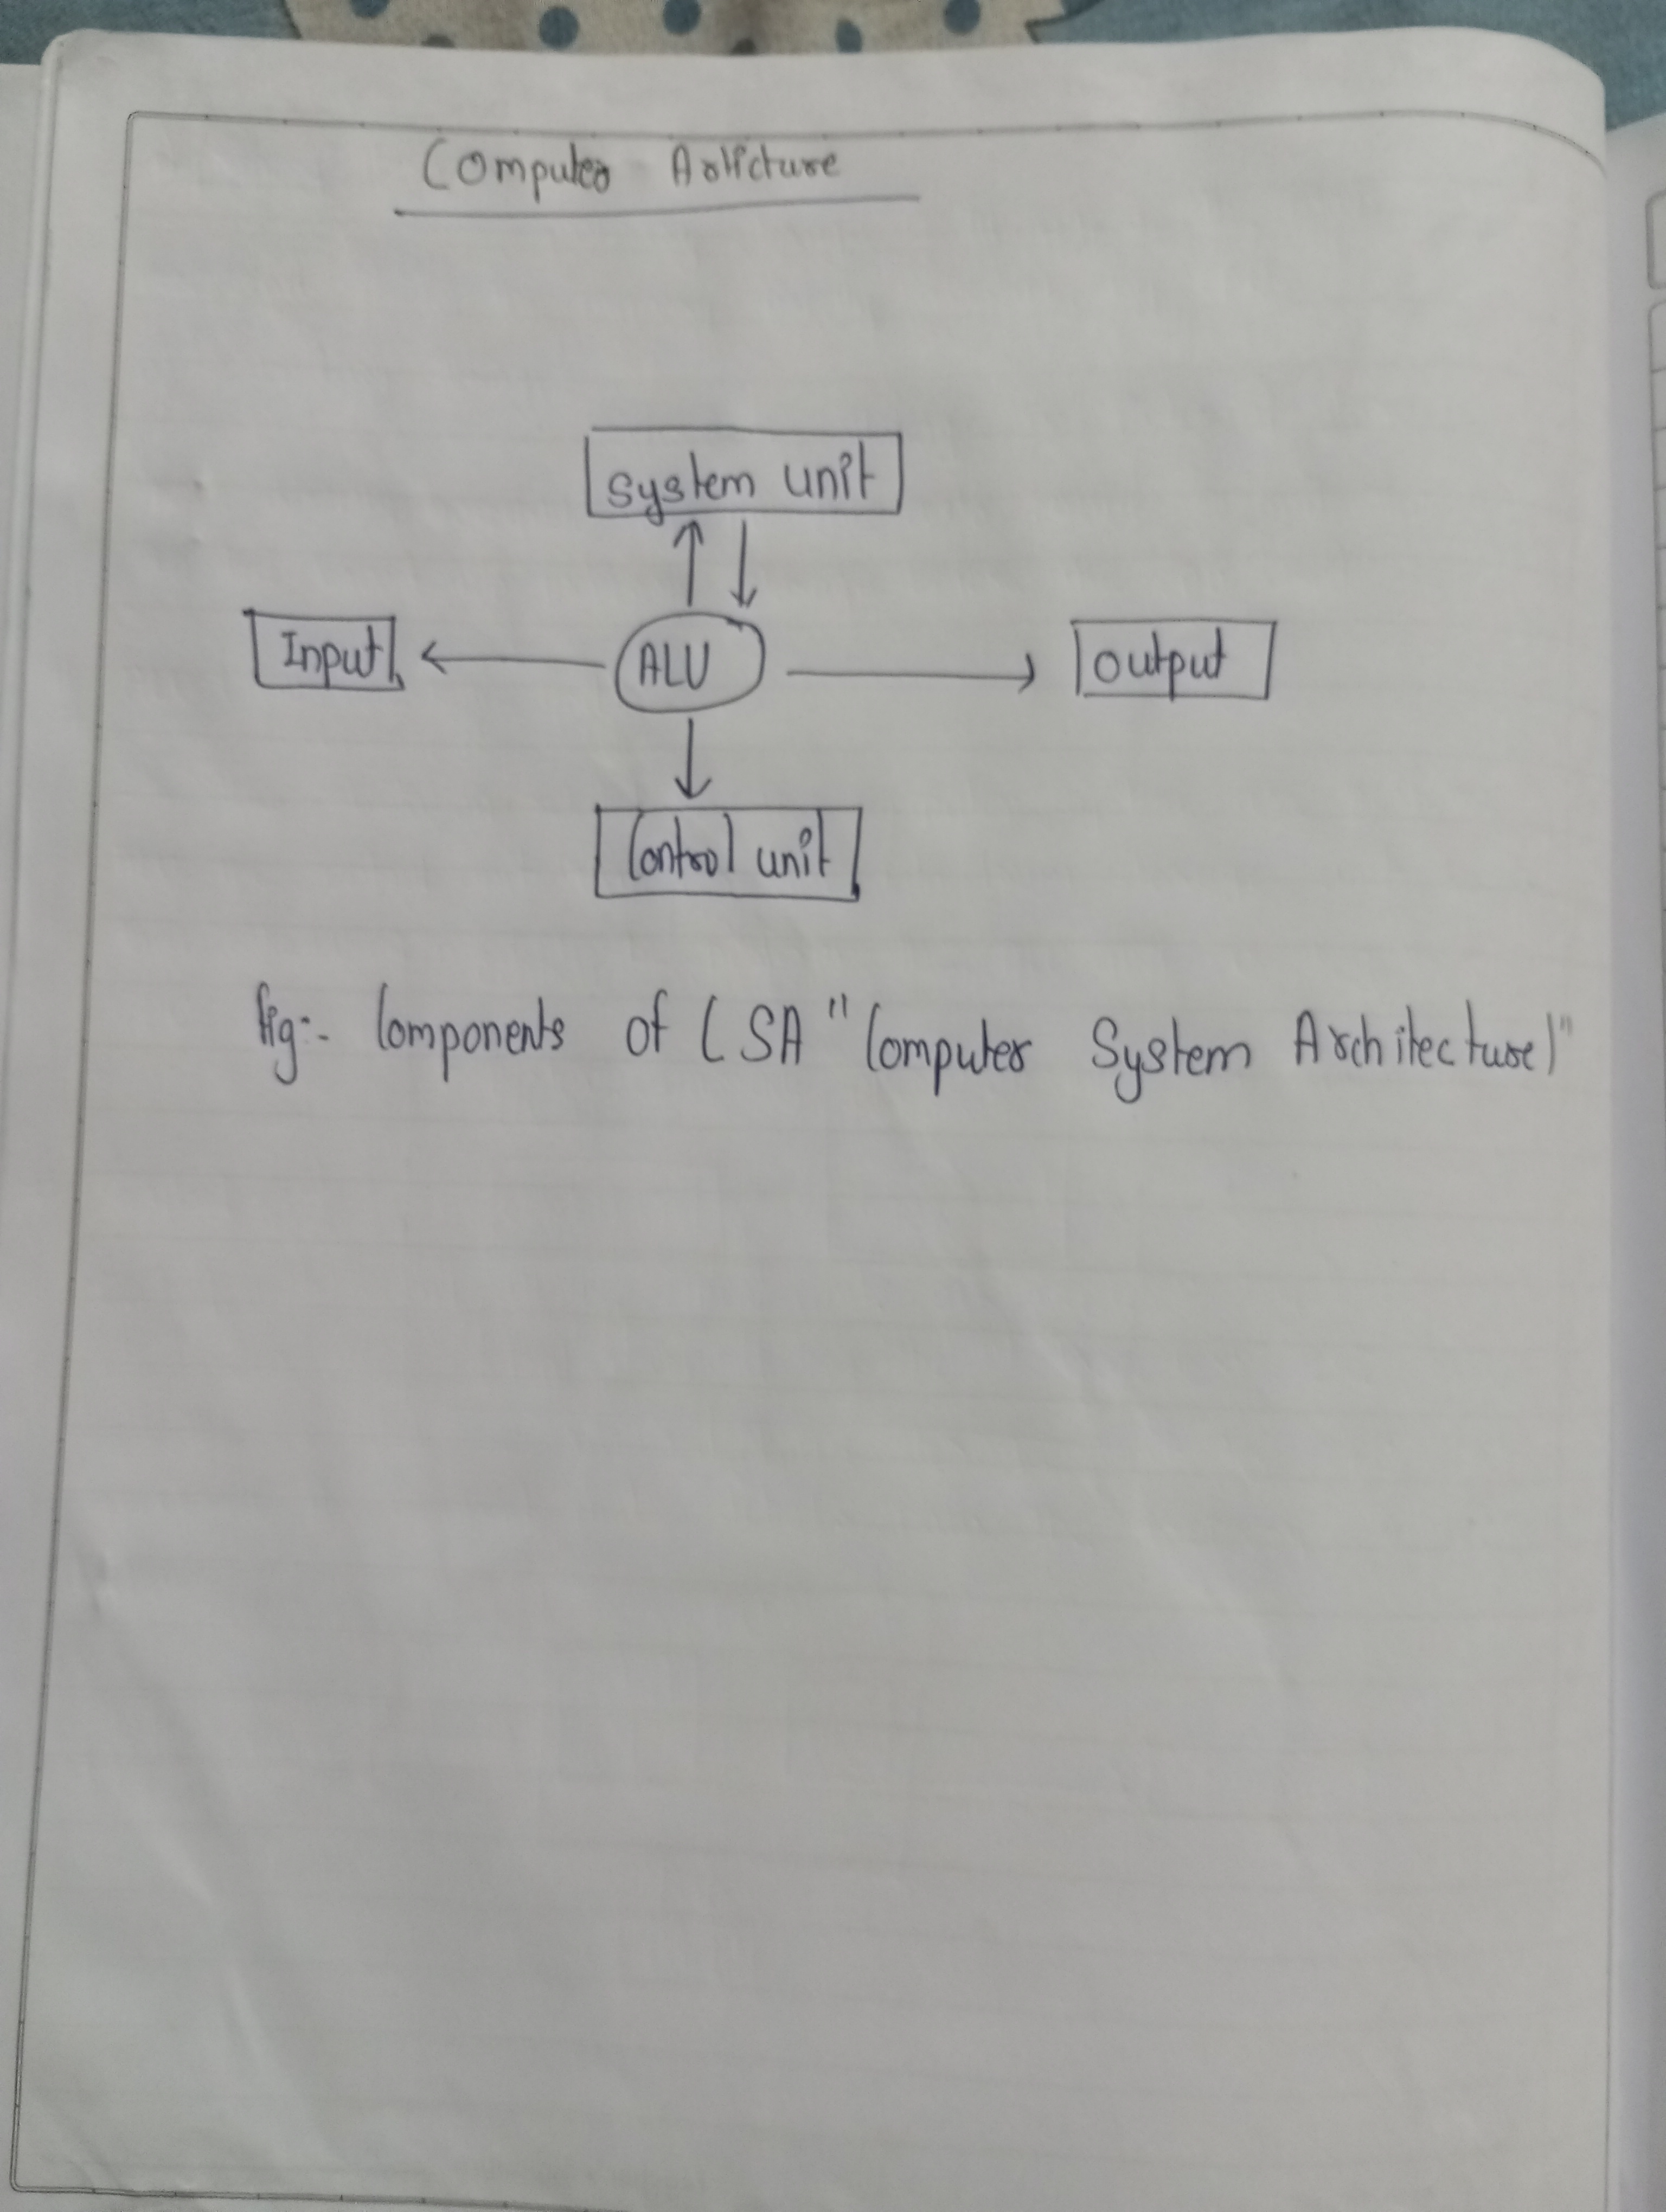 Computer Articture
System unit
Input
ALU
output
Control unit
fig:- Components of CSA "Computer System Architecture)"